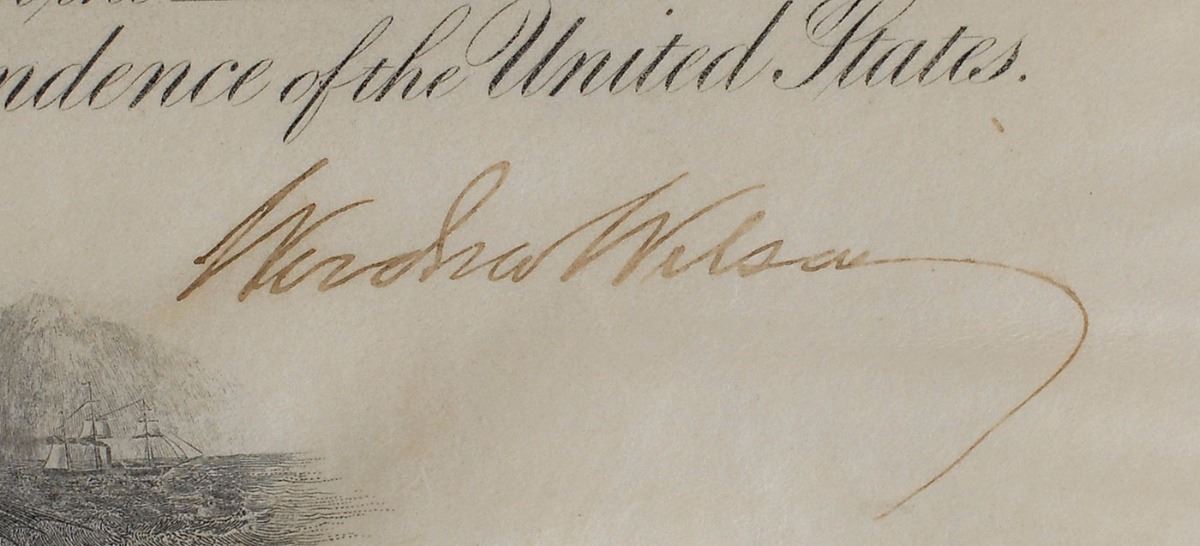 ndence of the United States.
Woodrow Wilson